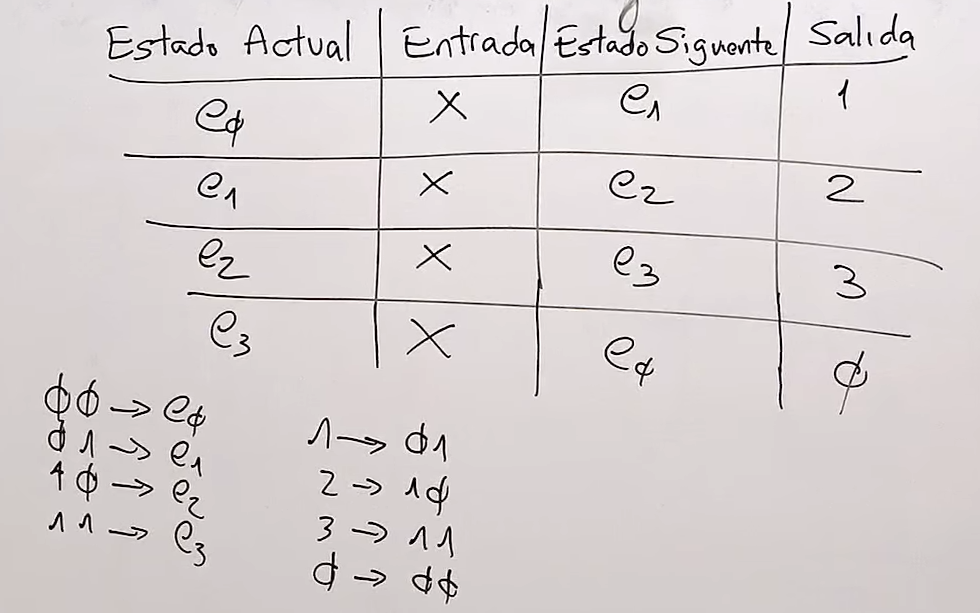 Estado Actual Entrada Estado Siguente Salida
e0 X e1 1
e1 X e2 2
e2 X e3 3
e3 X e0 0
00 → e0
01 → e1
10 → e2
11 → e3
1 → 01
2 → 10
3 → 11
0 → 00